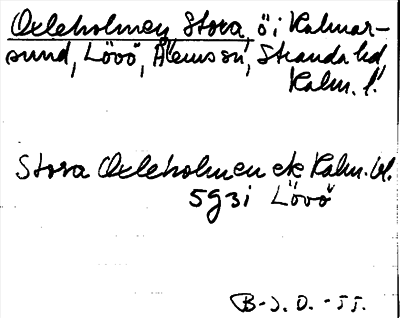 Oxleholmen, Stora, ö i Kalmar-
sund, Lövö, Ålems sn, Stranda hd,
Kalm. l.
Stora Oxleholmen ek Kalm. bl.
5g3i Lövö
B-J. O. -55.